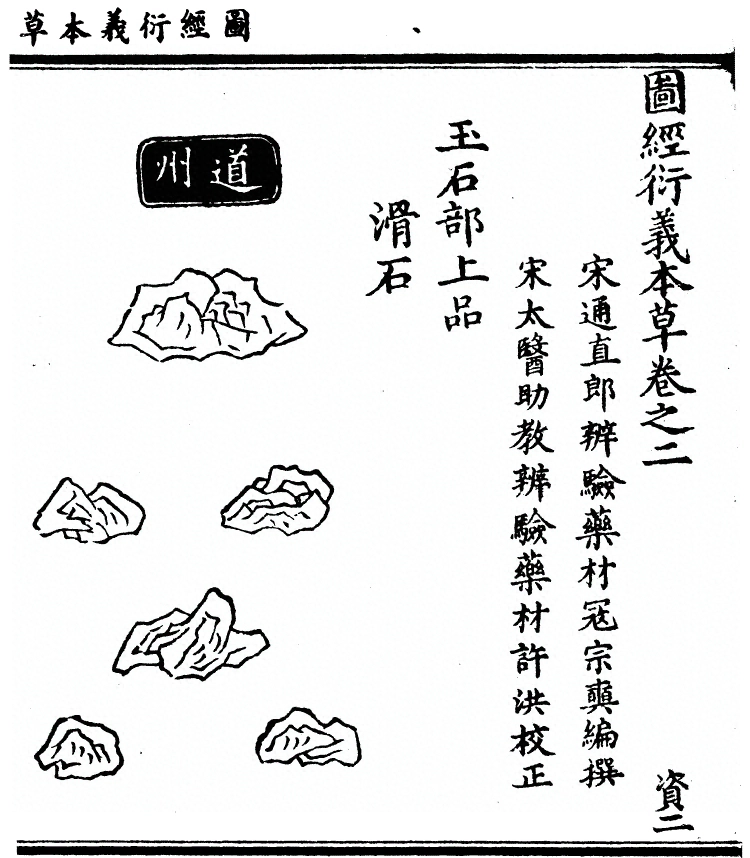 圖經衍義本草
圖經衍義本草卷之二
資二
宋通直郎辨驗藥材寇宗奭編撰
宋太醫助教辨驗藥材許洪校正
玉石部上品
滑石
道州